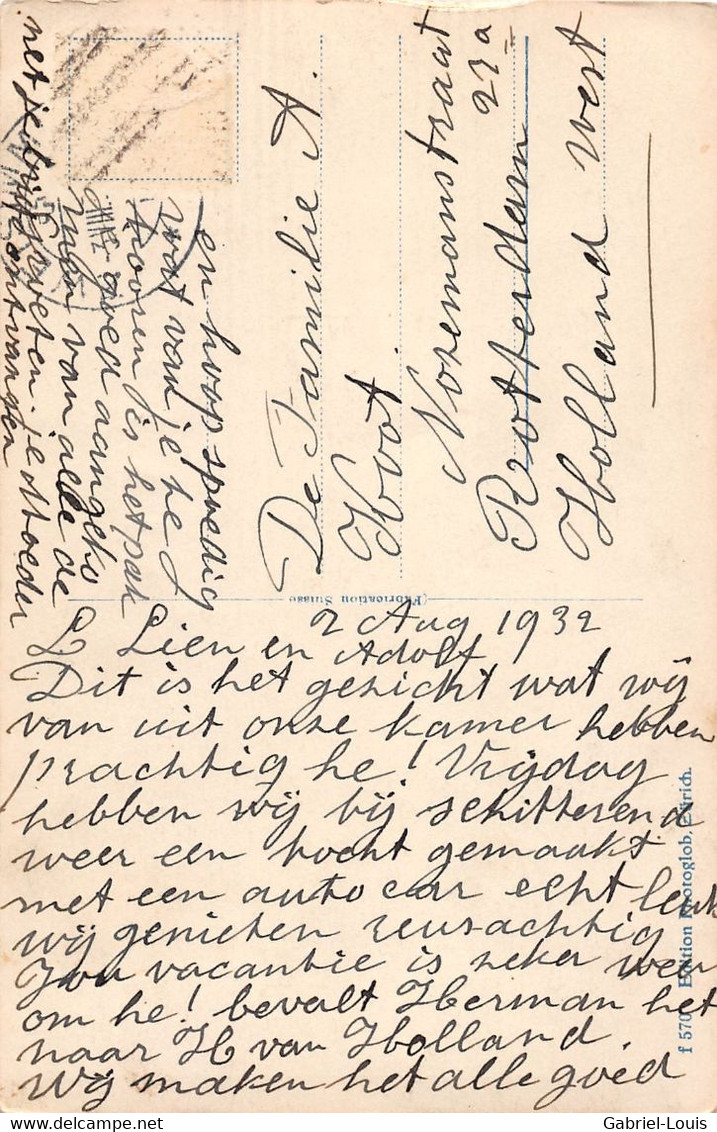 2 Aug 1932
L Lien en Adolf
Dit is het gezicht wat wij
van uit onze kamer hebben
prachtig he! Vrijdag
hebben wij bij schitterend
weer een tocht gemaakt
met een auto car echt leuk
wij genieten reusachtig
Jou vacantie is zeker weer
om he! bevalt Herman het
naar H van Holland.
Wij maken het alle goed
en hoop spoedig
wat van je te
hooren is het pak
goed aangeko
van alle de
groeten. je Moeder
net je brief ontvangen
De Familie A.
Korst.
Nozemanstraat
23a
Rotterdam
Holland west
(Fabrication Suisse)
Edition Photoglob, Zürich.
Gabriel-Louis